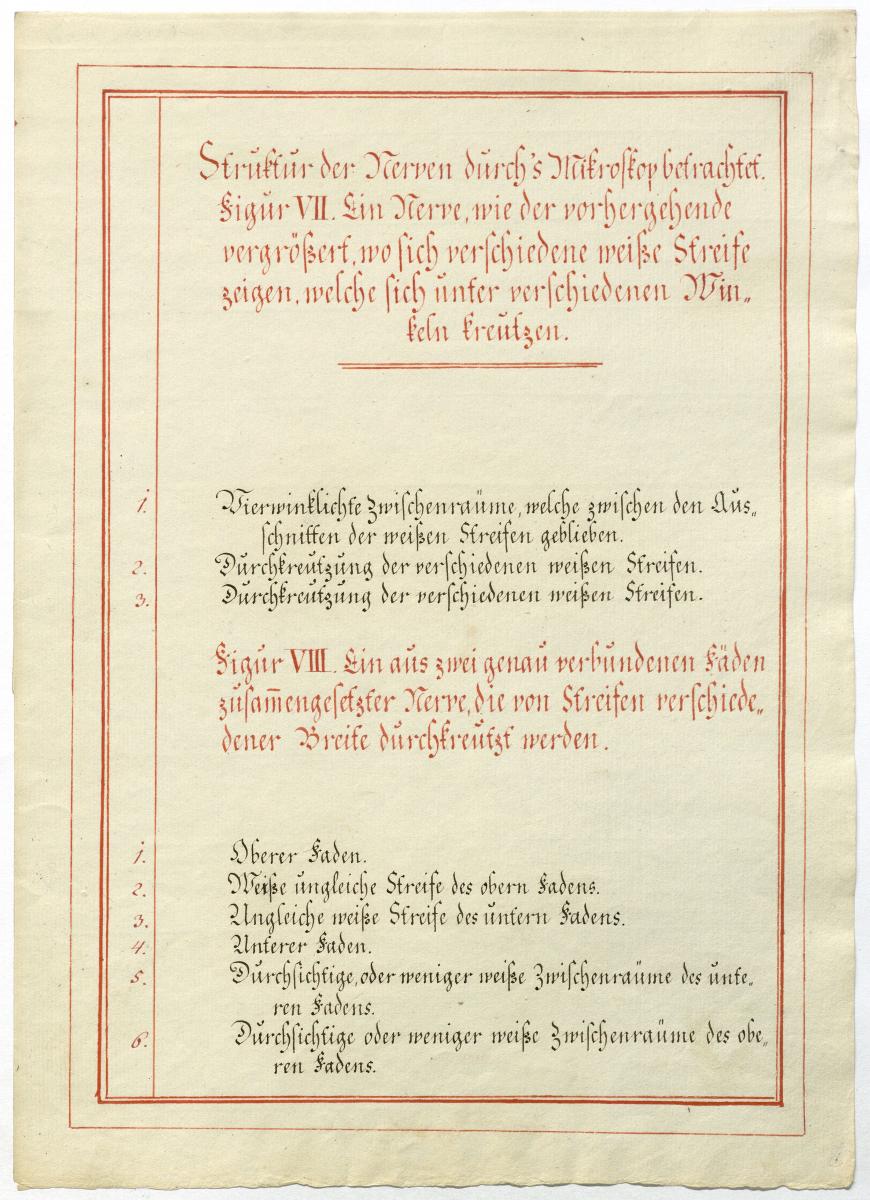 Struktur der Nerven durch's Mikroskop betrachtet.
Figur VII. Ein Nerve, wie der vorhergehende
vergrößert, wo sich verschiedene weiße Streife
zeigen, welche sich unter verschiedenen Win„
keln kreutzen.
1. Vierwinklichte Zwischenraüme, welche zwischen den Aus„
schnitten der weißen Streifen geblieben.
2. Durchkreutzung der verschiedenen weißen Streifen.
3. Durchkreutzung der verschiedenen weißen Streifen.
Figur VIII. Ein aus zwei genau verbundenen Fäden
zusam̅engesetzter Nerve, die von Streifen verschiede„
dener Breite durchkreutzt werden.
1. Oberer Faden.
2. Weiße ungleiche Streife des obern Fadens.
3. Ungleiche weiße Streife des untern Fadens.
4. Unterer Faden.
5. Durchsichtige, oder weniger weiße Zwischenraüme des unte„
ren Fadens.
6. Durchsichtige oder weniger weiße Zwischenraüme des obe„
ren Fadens.